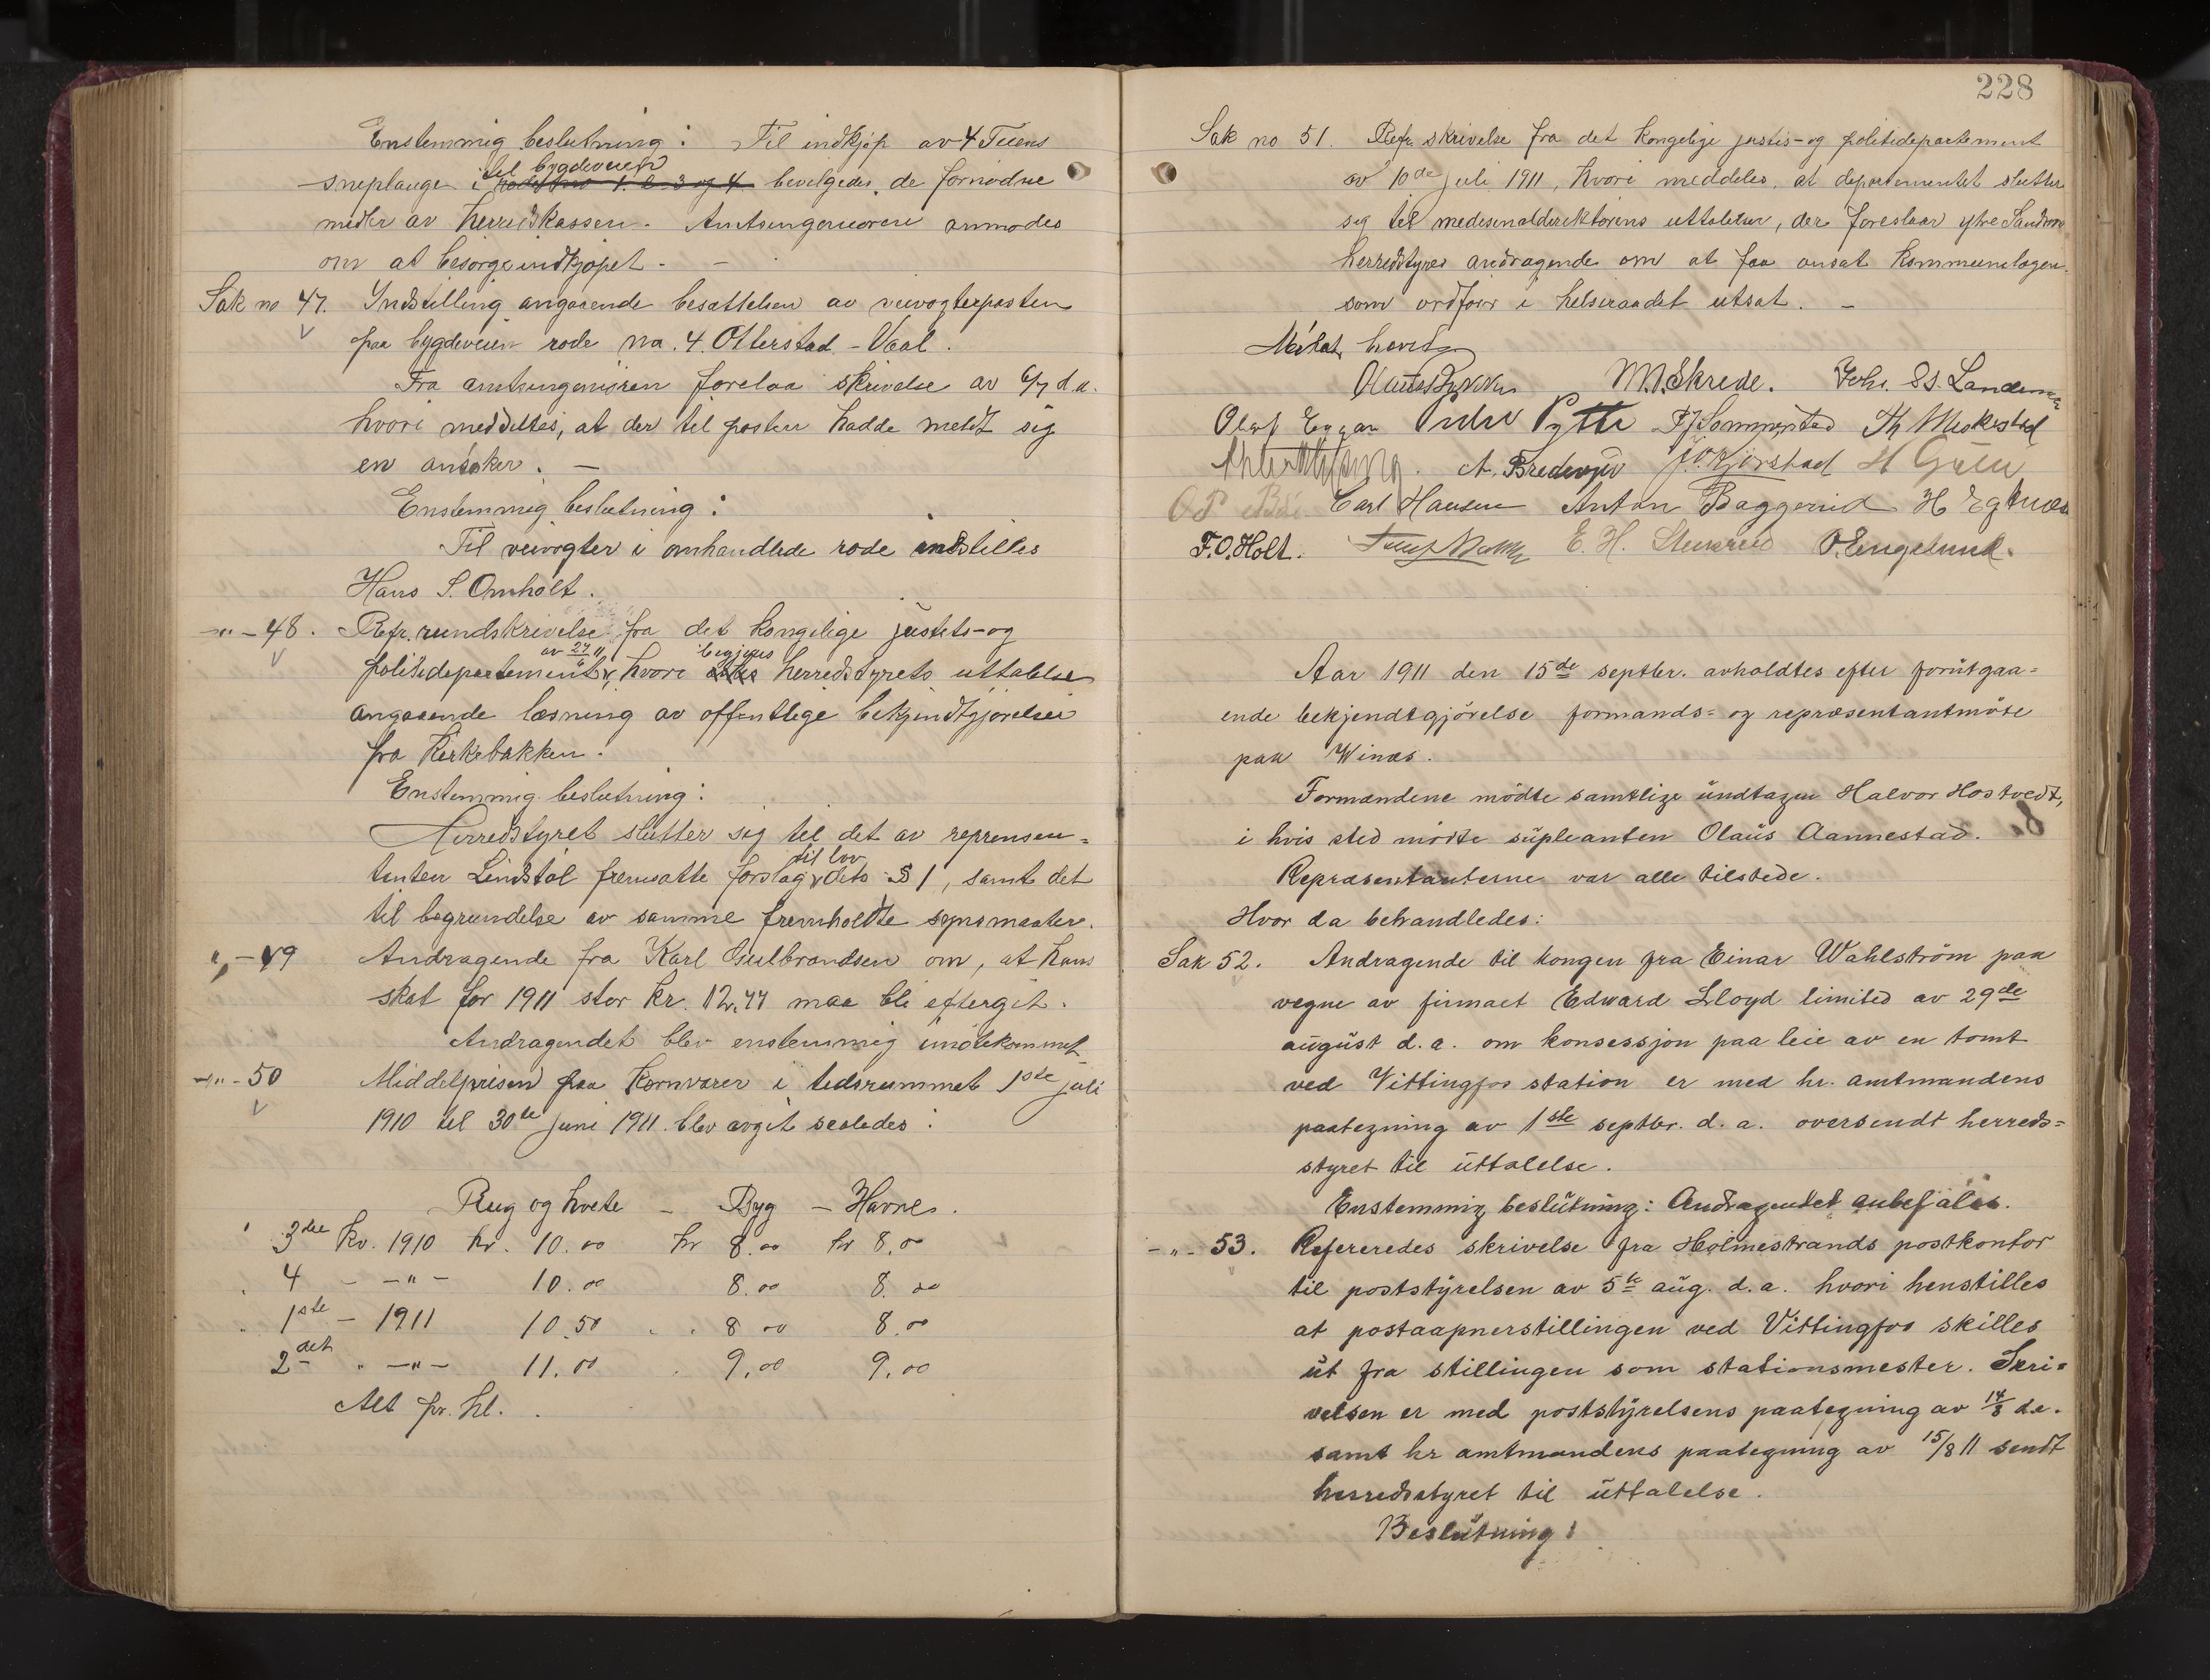 Enstemmig beslutning: Til indkjøp av 4 Tuens
til bygdeveien
sneplauge i rodes no 1. 2. 3 og 4 bevilgedes de fornødne
midler av herredskassen. Amtsingeniøren anmodes
om at besørge indkjøpet. -
Sak no 47. Indstilling angaaende besættelsen av veivogterposten
paa bygdeveien rode no. 4. Otterstad - Vaal.
Fra amtsingeniøren forelaa skrivelse av 6/7 d.a.
hvori meddeltes, at der til posten hadde meldt sig
en ansøker. -
Enstemmig beslutning:
Til veivogter i omhandlede rode indstilles
Hans S. Omholt.
-"- 48. Refr. rundskrivelse fra det kongelige justits- og
av 27/6 11 begjæres
politidepartement, hvori herredstyrets uttalelse
angaaende læsning av offentlige bekjendtgjørelser
fra Kirkebakken.
Enstemmig beslutning:
Herredstyret slutter sig til det av reprensen-
til lov
tanten Lindstøl fremsatte forslag dets § 1, samt det
til begrundelse av samme fremholdte synsmaater.
"- 49 Andragende fra Karl Gulbrandsen om, at hans
skat for 1911 stor kr. 12.44 maa bli eftergit.
Andragendet blev enstemmig imøtekommet
-"- 50 Middelprisen paa kornvarer i tidsrummet 1ste juli
1910 til 30te juni 1911 blev avgit saaledes:
Rug og hvete - Byg - Havre.
3die kv. 1910 kr. 10.00 kr 8.00 kr 8.00
4 - -"- 10.00 8.00 8.00
1ste - 1911 10.50 8 00 8.00
2det " -"- 11.00 9.00 9.00
Alt pr. hl.
228
Sak no 51. Refr. skrivelse fra det kongelige justis- og politidepartement
av 10de juli 1911, hvori meddeles, at departementet slutter
sig til medesinaldirektørens uttalelse, der foreslaar ytre Sandsvær
herredstyres andragende om at faa ansat kommunelægen
som ordfører i helseraadet utsat. -
Møtet hævet
M. Skrede. Joh. Landem
Olaf Eggar Peder Pytte Sommerstad Th Meskestad
A. Bredesen J.O. Kjørstad H
Carl Hansen Anton Baggerud H
F.O. Holt. E. H. Stensrud O. Engelund.
Aar 1911 den 15de septbr. avholdtes efter forutgaa=
ende bekjendtgjörelse formands= og repræsentantmöte
paa Winæs.
Formændene mödte samtlige undtagen Halvor Hostvedt,
i hvis sted mödte supleanten Olaus Aannestad.
Repræsentanterne var alle tilstede.
Hvor da behandledes:
Sak 52. Andragende til kongen fra Einar Wahlström paa
vegne av firmaet Edward Lloyd limited av 29de
august d.a. om konsessjon paa leie av en tomt
ved Vittingfos station er med hr. amtmandens
paategning av 1ste septbr. d.a. oversendt herreds=
styret til uttalelse.
Enstemmig beslutning: Andragendet anbefales.
-"- 53. Refereredes skrivelse fra Holmestrands postkontor
til poststyrelsen av 5te aug. d.a. hvori henstilles
at postaapnerstillingen ved Vittingfos skilles
ut fra stillingen som stationsmester. Skri=
velsen er med poststyrelsens paategning av 14/8 d.a.
samt hr amtmandens paategning av 15/8 11 sendt
herredsstyret til uttalelse.
Beslutning: